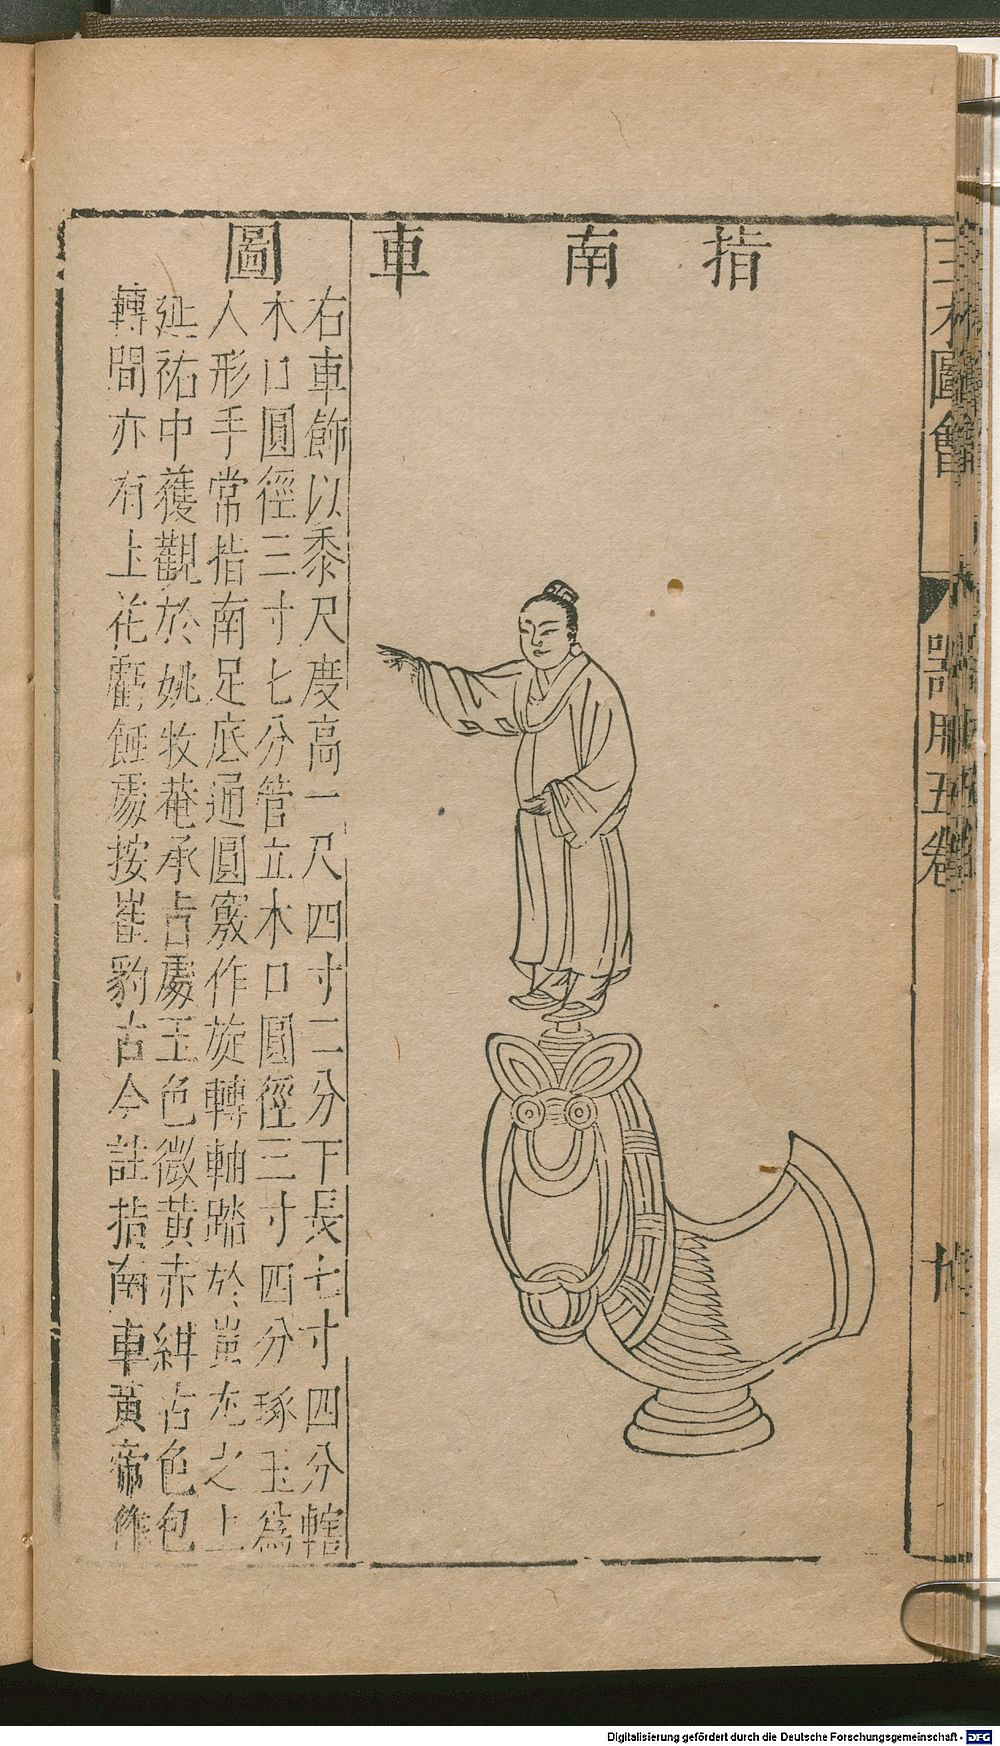 三才圖會
器用五卷
指南車圖
右車飾以黍尺度高一尺四寸二分下長七寸四分轄
木口圓徑三寸七分管立木口圓徑三寸四分琢玉爲
人形手常指南足底通圓竅作旋轉軸踏於蚩尤之上
延祐中獲觀於姚牧菴承旨處玉色微黃赤紺古色包
轉間亦有土花虧蝕處按崔豹古今註指南車黃帝作
Digitalisierung gefördert durch die Deutsche Forschungsgemeinschaft - DFG